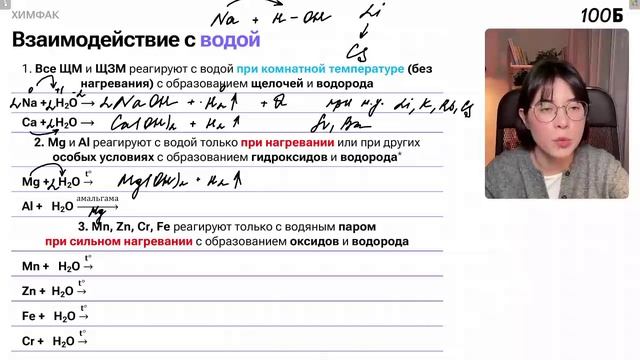 ХИМФАК
Na + H-OH Li
100Б
↓
Cs
Взаимодействие с водой
1. Все ЩМ и ЩЗМ реагируют с водой при комнатной температуре (без
нагревания) с образованием щелочей и водорода
2Na + 2H₂O → 2NaOH + H₂↑ + Q Li, K, Rb, Cs
Ca + 2H₂O → Ca(OH)₂ + H₂↑ Sr, Ba
2. Mg и Al реагируют с водой только при нагревании или при других
особых условиях с образованием гидроксидов и водорода*
Mg + 2H₂O t° → Mg(OH)₂ + H₂↑
Al + H₂O амальгама →
Hg
3. Mn, Zn, Cr, Fe реагируют только с водяным паром
при сильном нагревании с образованием оксидов и водорода
Mn + H₂O t° →
Zn + H₂O t° →
Fe + H₂O t° →
Cr + H₂O t° →